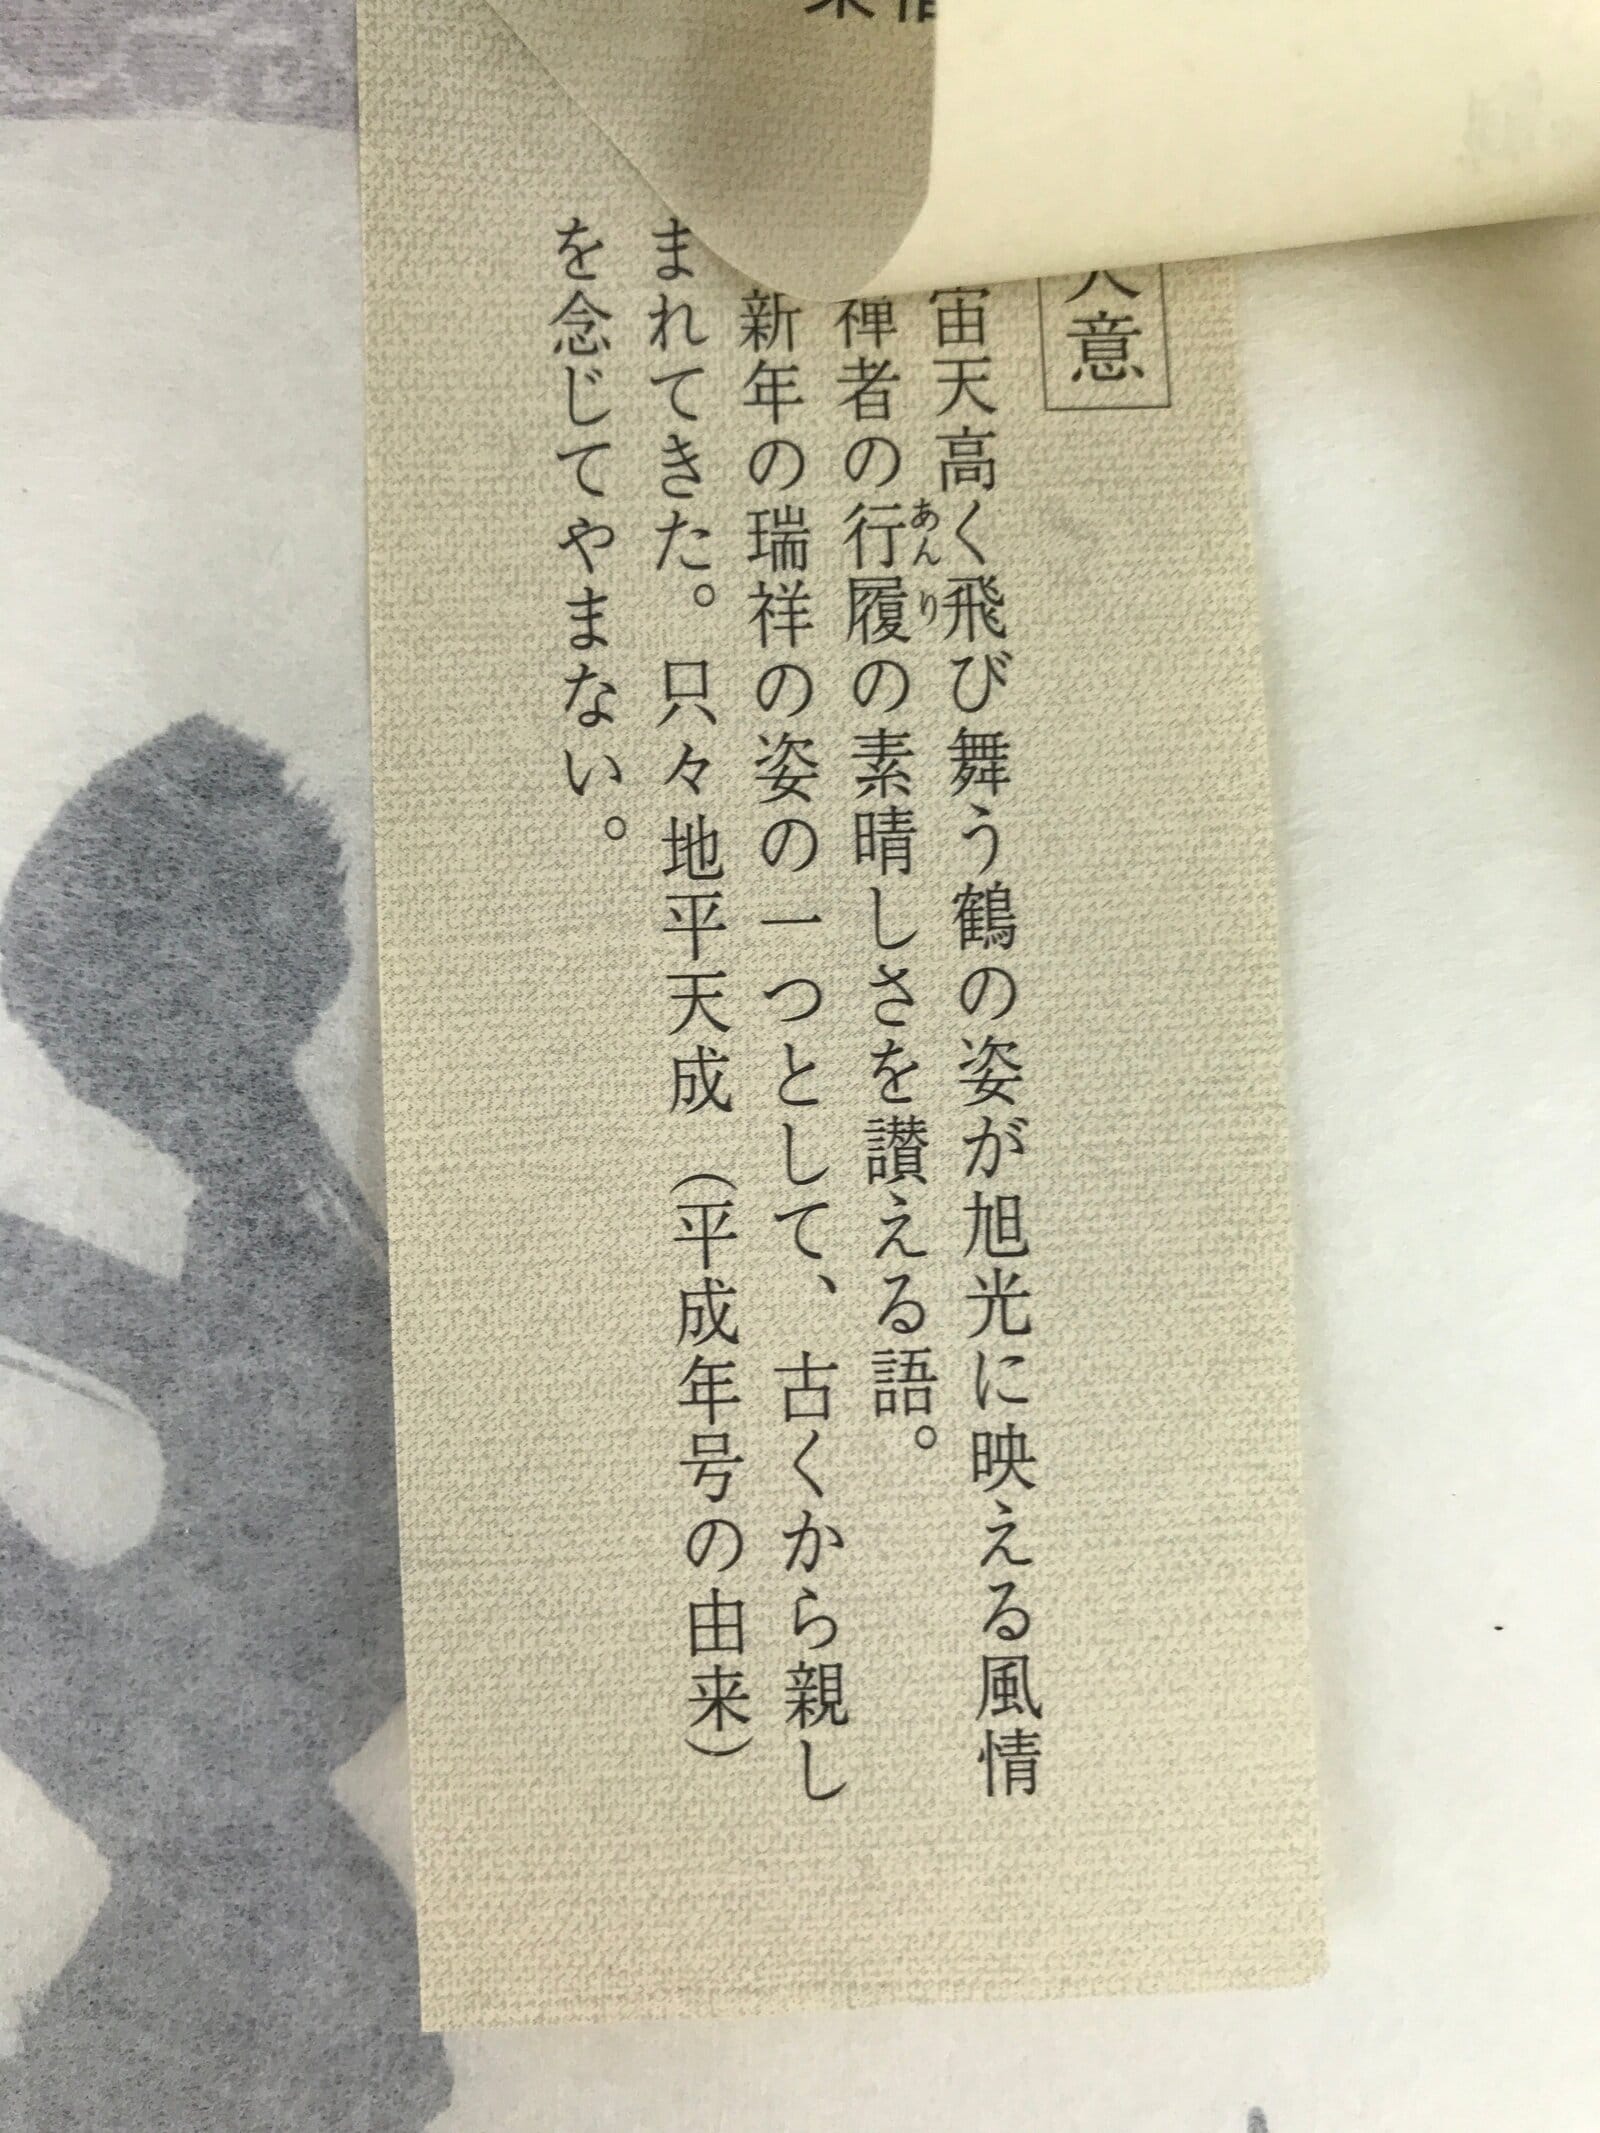 大意
宙天高く飛び舞う鶴の姿が旭光に映える風情
禅者の行履の素晴しさを讃える語。
あんり
新年の瑞祥の姿の一つとして、古くから親し
まれてきた。只々地平天成（平成年号の由来）
を念じてやまない。